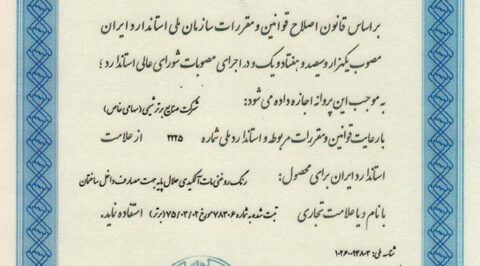 بر اساس قانون اصلاح قوانین و مقررات سازمان ملی استاندارد ایران
مصوب یکهزار و سیصد و هفتاد و یک و در اجرای مصوبات شورای عالی استاندارد ؛
به موجب این پروانه اجازه داده می شود:
شرکت صنایع برتر شیمی (سهامی خاص)
با رعایت قوانین و مقررات مربوطه و استاندارد ملی شماره ۲۲۲۵ از علامت
استاندارد ایران برای محصول: رنگ روغنی مات آلکیدی حلال پایه جهت مصارف داخل ساختمان
با نام و یا علامت تجاری ثبت شده به شماره ۷۸۳۰۶ مورخ ۷۵/۰۳/۰۲ (برتر) استفاده نماید.
شناسه ملی: